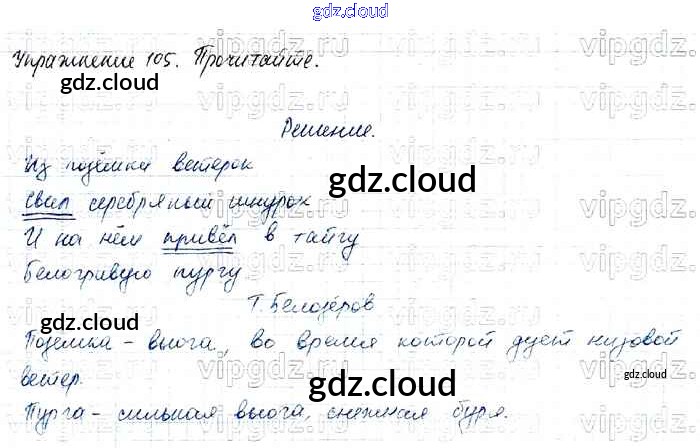 gdz.cloud
Упражнение 105. Прочитайте.
Решение.
Из позёмки ветерок
Свил серебряный шнурок
И на нём привёл в тайгу
Белогривую пургу
Т. Белозёров
Поземка - вьюга, во время которой дует низовой
ветер.
Пурга - сильная вьюга, снежная буря.